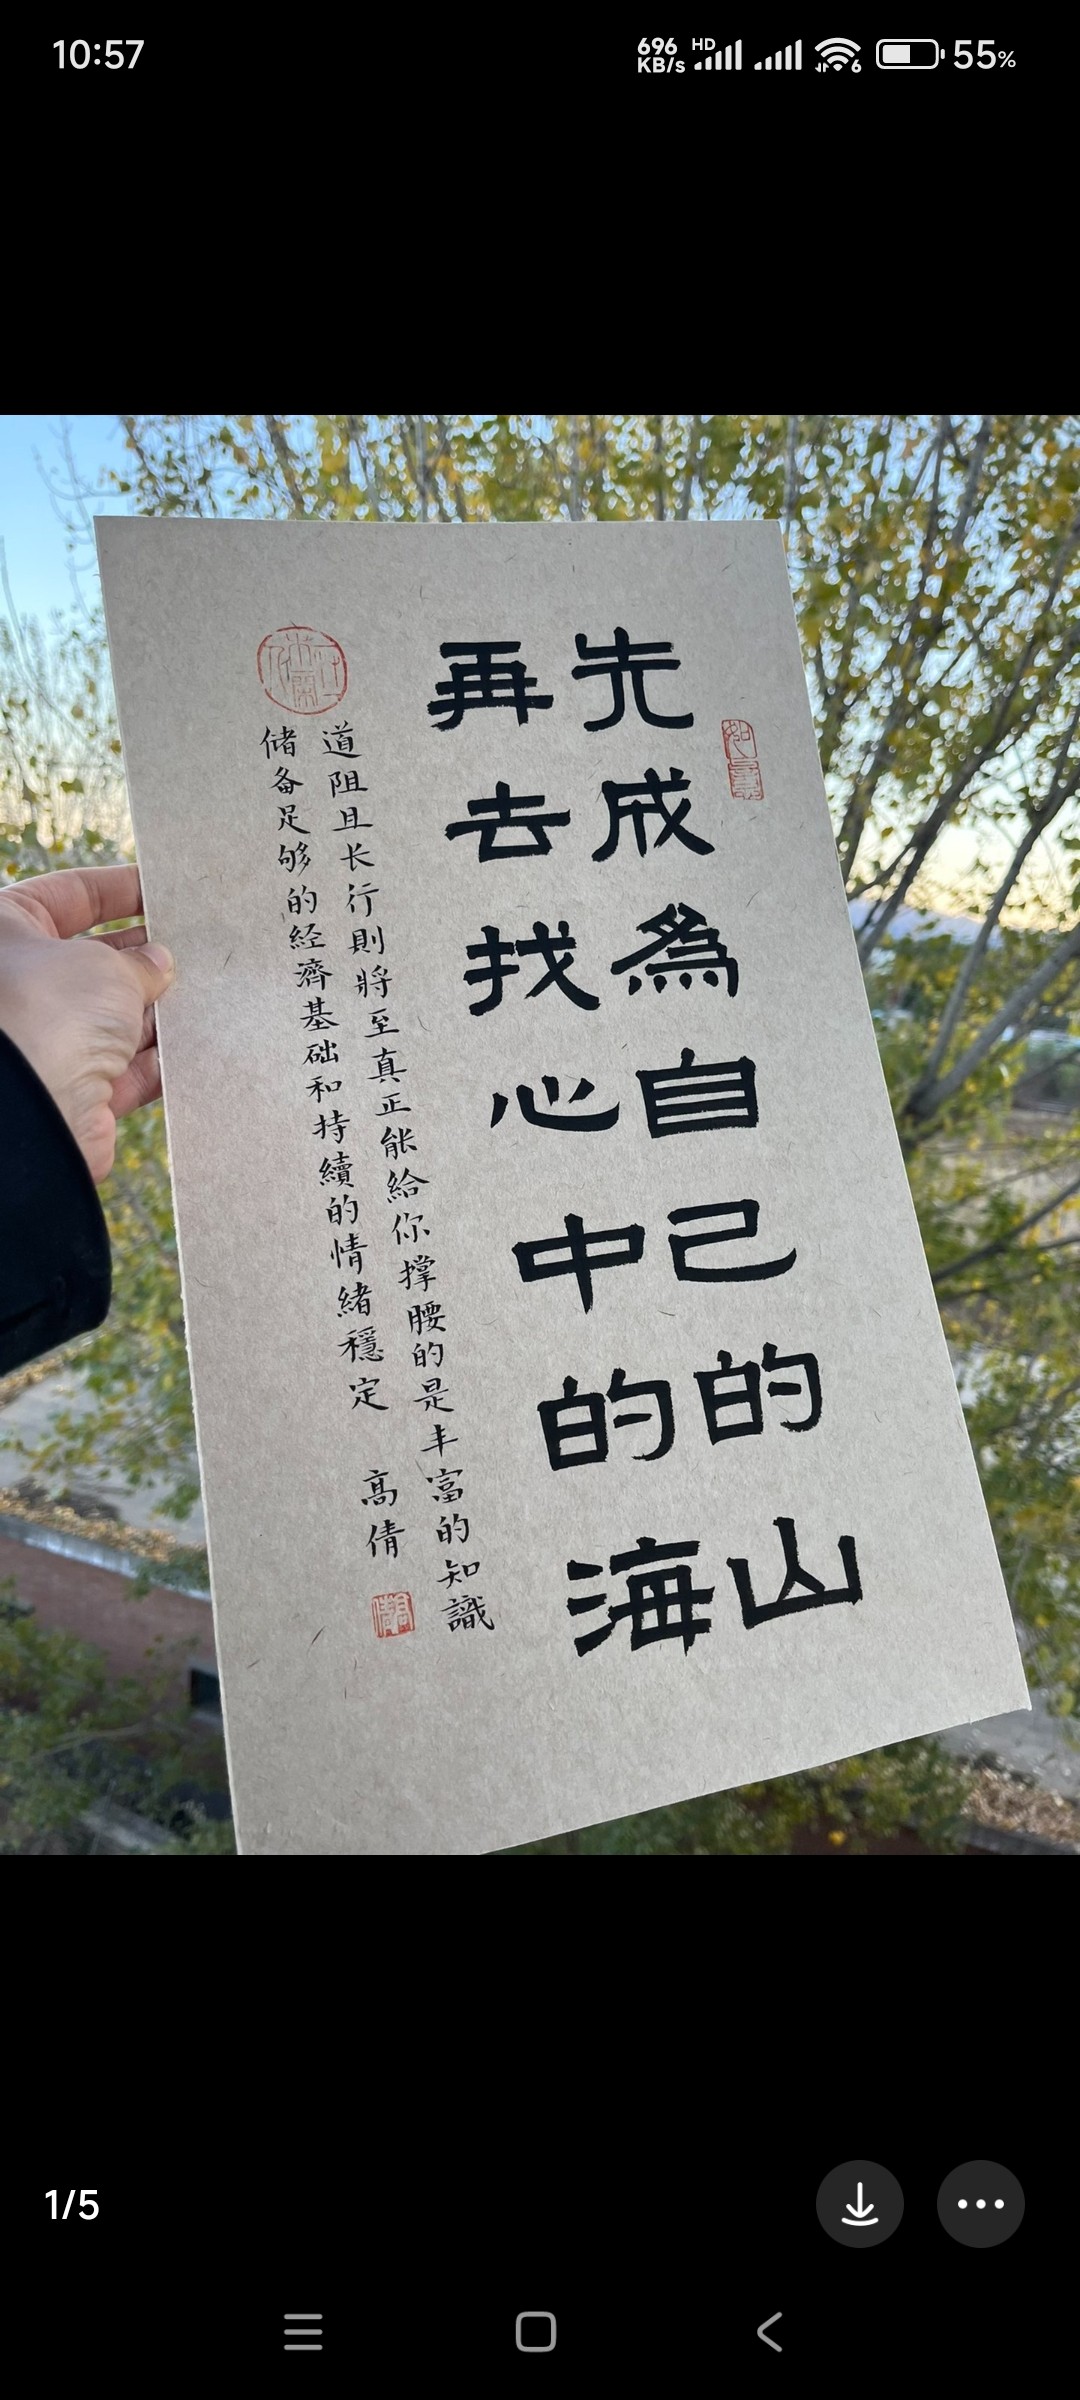 10:57
696 KB/s HD 6 55%
先成為自己的山
再去找心中的海
道阻且长行則將至真正能給你撑腰的是丰富的知識
储备足够的经濟基础和持續的情緒穩定 高倩
如意
1/5